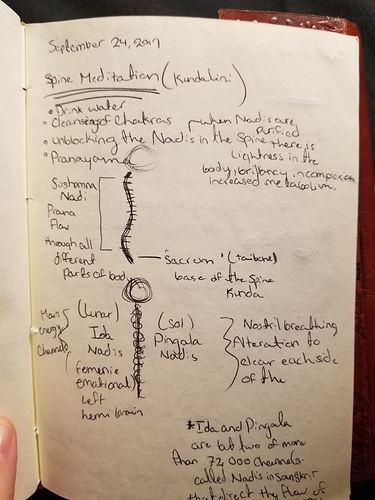 September 24, 2019
Spine Meditation (Kundalini)
• Drink water
• Cleansing of Chakras
• Unblocking the Nadis in the Spine
• Pranayama
When Nadis are
purified
there is
Lightness in the
body, brilliancy in complexion
increased metabolism.
Sushumna
Nadi
Prana
Flow
through all
different
parts of body
"Sacrum" (tailbone)
base of the Spine
Kunda
Main
energy
Channels
(lunar)
Ida
Nadis
femenie
emational
left
hemi brain
(sol)
Pingala
Nadis
Nostril breathing
Alteration to
clear each side
of the
*Ida and Pingala
are but two of more
than 72,000 channels
called Nadis in sanskrit
that direct the flow of